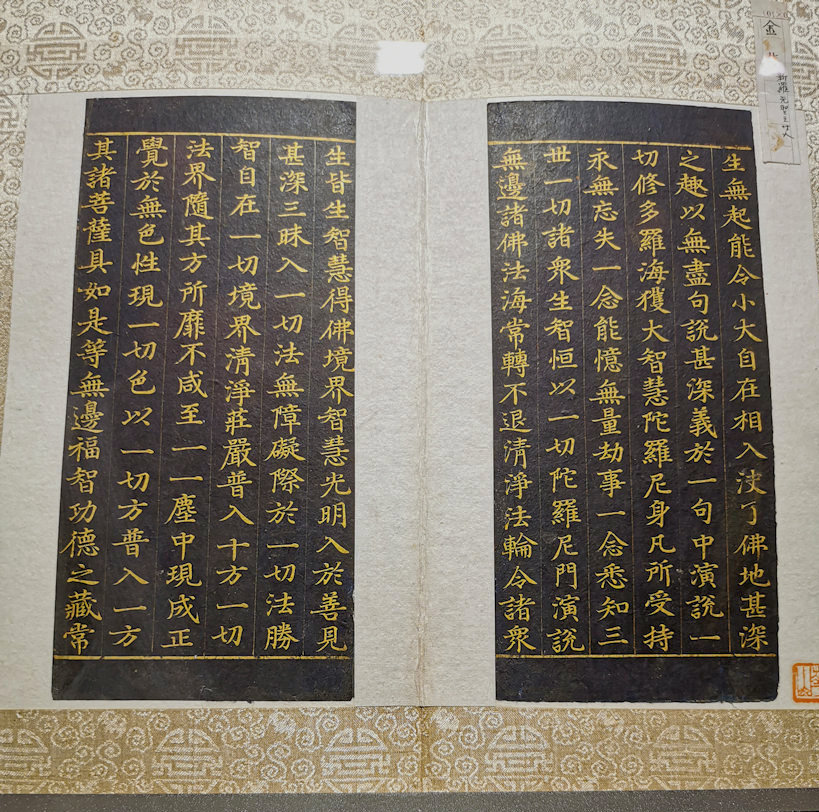 金
新羅元聖王
生無起能令小大自在相入决了佛地甚深
之趣以無盡句說甚深義於一句中演說一
切修多羅海獲大智慧陀羅尼身凡所受持
永無忘失一念能憶無量劫事一念悉知三
世一切諸衆生智恒以一切陀羅尼門演說
無邊諸佛法海常轉不退清淨法輪令諸衆
生皆生智慧得佛境界智慧光明入於善見
甚深三昧入一切法無障礙際於一切法勝
智自在一切境界清淨莊嚴普入十方一切
法界隨其方所靡不咸至一一塵中現成正
覺於無色性現一切色以一切方普入一方
其諸菩薩具如是等無邊福智功德之藏常